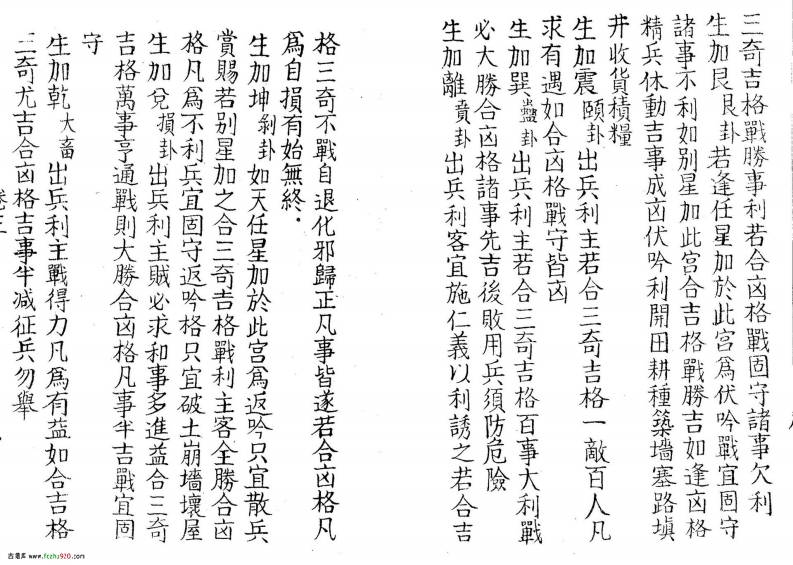 三奇吉格戰勝事利若合凶格戰固守諸事欠利
生加艮艮卦若逢任星加於此宮爲伏吟戰宜固守
諸事不利如别星加此宮合吉格戰勝吉如逢凶格
精兵休動吉事成凶伏吟利開田耕種築墻塞路塡
井收貨積糧
生加震頤卦出兵利主若合三奇吉格一敵百人凡
求有遇如合凶格戰守皆凶
生加巽蠱卦出兵利主若合三奇吉格百事大利戰
必大勝合凶格諸事先吉後敗用兵須防危險
生加離賁卦出兵利客宜施仁義以利誘之若合吉
格三奇不戰自退化邪歸正凡事皆遂若合凶格凡
爲自損有始無終．
生加坤剝卦如天任星加於此宮爲返吟只宜散兵
賞賜若别星加之合三奇吉格戰利主客全勝合凶
格凡爲不利兵宜固守返吟格只宜破土崩墻壞屋
生加兌損卦出兵利主賊必求和事多進益合三奇
吉格萬事亨通戰則大勝合凶格凡事半吉戰宜固
守
生加乾大畜出兵利主戰得力凡爲有益如合吉格
三奇尤吉合凶格吉事半減征兵勿舉
卷三
古籍库 www.fczhu920.com